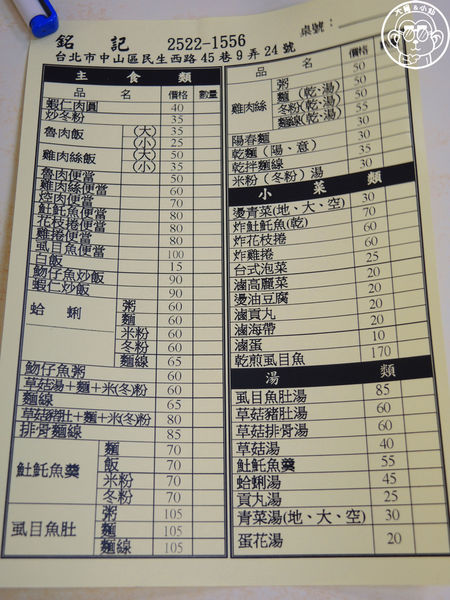 大手&小船
銘記 2522-1556 桌號：
台北市中山區民生西路45巷9弄24號
主食類
品名 價格 數量
蝦仁肉圓 40
炒冬粉 35
魯肉飯 (大) 35
(小) 25
雞肉絲飯 (大) 50
(小) 35
魯肉便當 50
雞肉絲便當 60
焢肉便當 70
𩵚魠魚便當 80
花枝捲便當 80
雞捲便當 80
虱目魚便當 100
白飯 15
魩仔魚炒飯 90
蝦仁炒飯 90
蛤蜊 粥 60
麵 60
米粉 60
冬粉 60
麵線 65
魩仔魚粥 60
草菇湯+麵+米(冬)粉 60
麵線 65
草菇豬肚+麵+米(冬)粉 80
排骨麵線 85
𩵚魠魚羹 麵 70
飯 70
米粉 70
冬粉 70
虱目魚肚 粥 105
麵 105
麵線 105
品名 價格
雞肉絲 粥 50
麵(乾、湯) 50
冬粉(乾、湯) 50
麵線(乾、湯) 50
陽春麵 30
乾麵(陽、意) 35
乾拌麵線 30
米粉(冬粉)湯 30
小菜類
燙青菜(地、大、空) 30
炸𩵚魠魚(乾) 70
炸花枝捲 60
炸雞捲 60
台式泡菜 25
滷高麗菜 30
燙油豆腐 20
滷貢丸 20
滷海帶 20
滷蛋 10
乾煎虱目魚 170
湯類
虱目魚肚湯 85
草菇豬肚湯 60
草菇排骨湯 60
草菇湯 40
𩵚魠魚羹 55
蛤蜊湯 45
貢丸湯 25
青菜湯(地、大、空) 30
蛋花湯 20